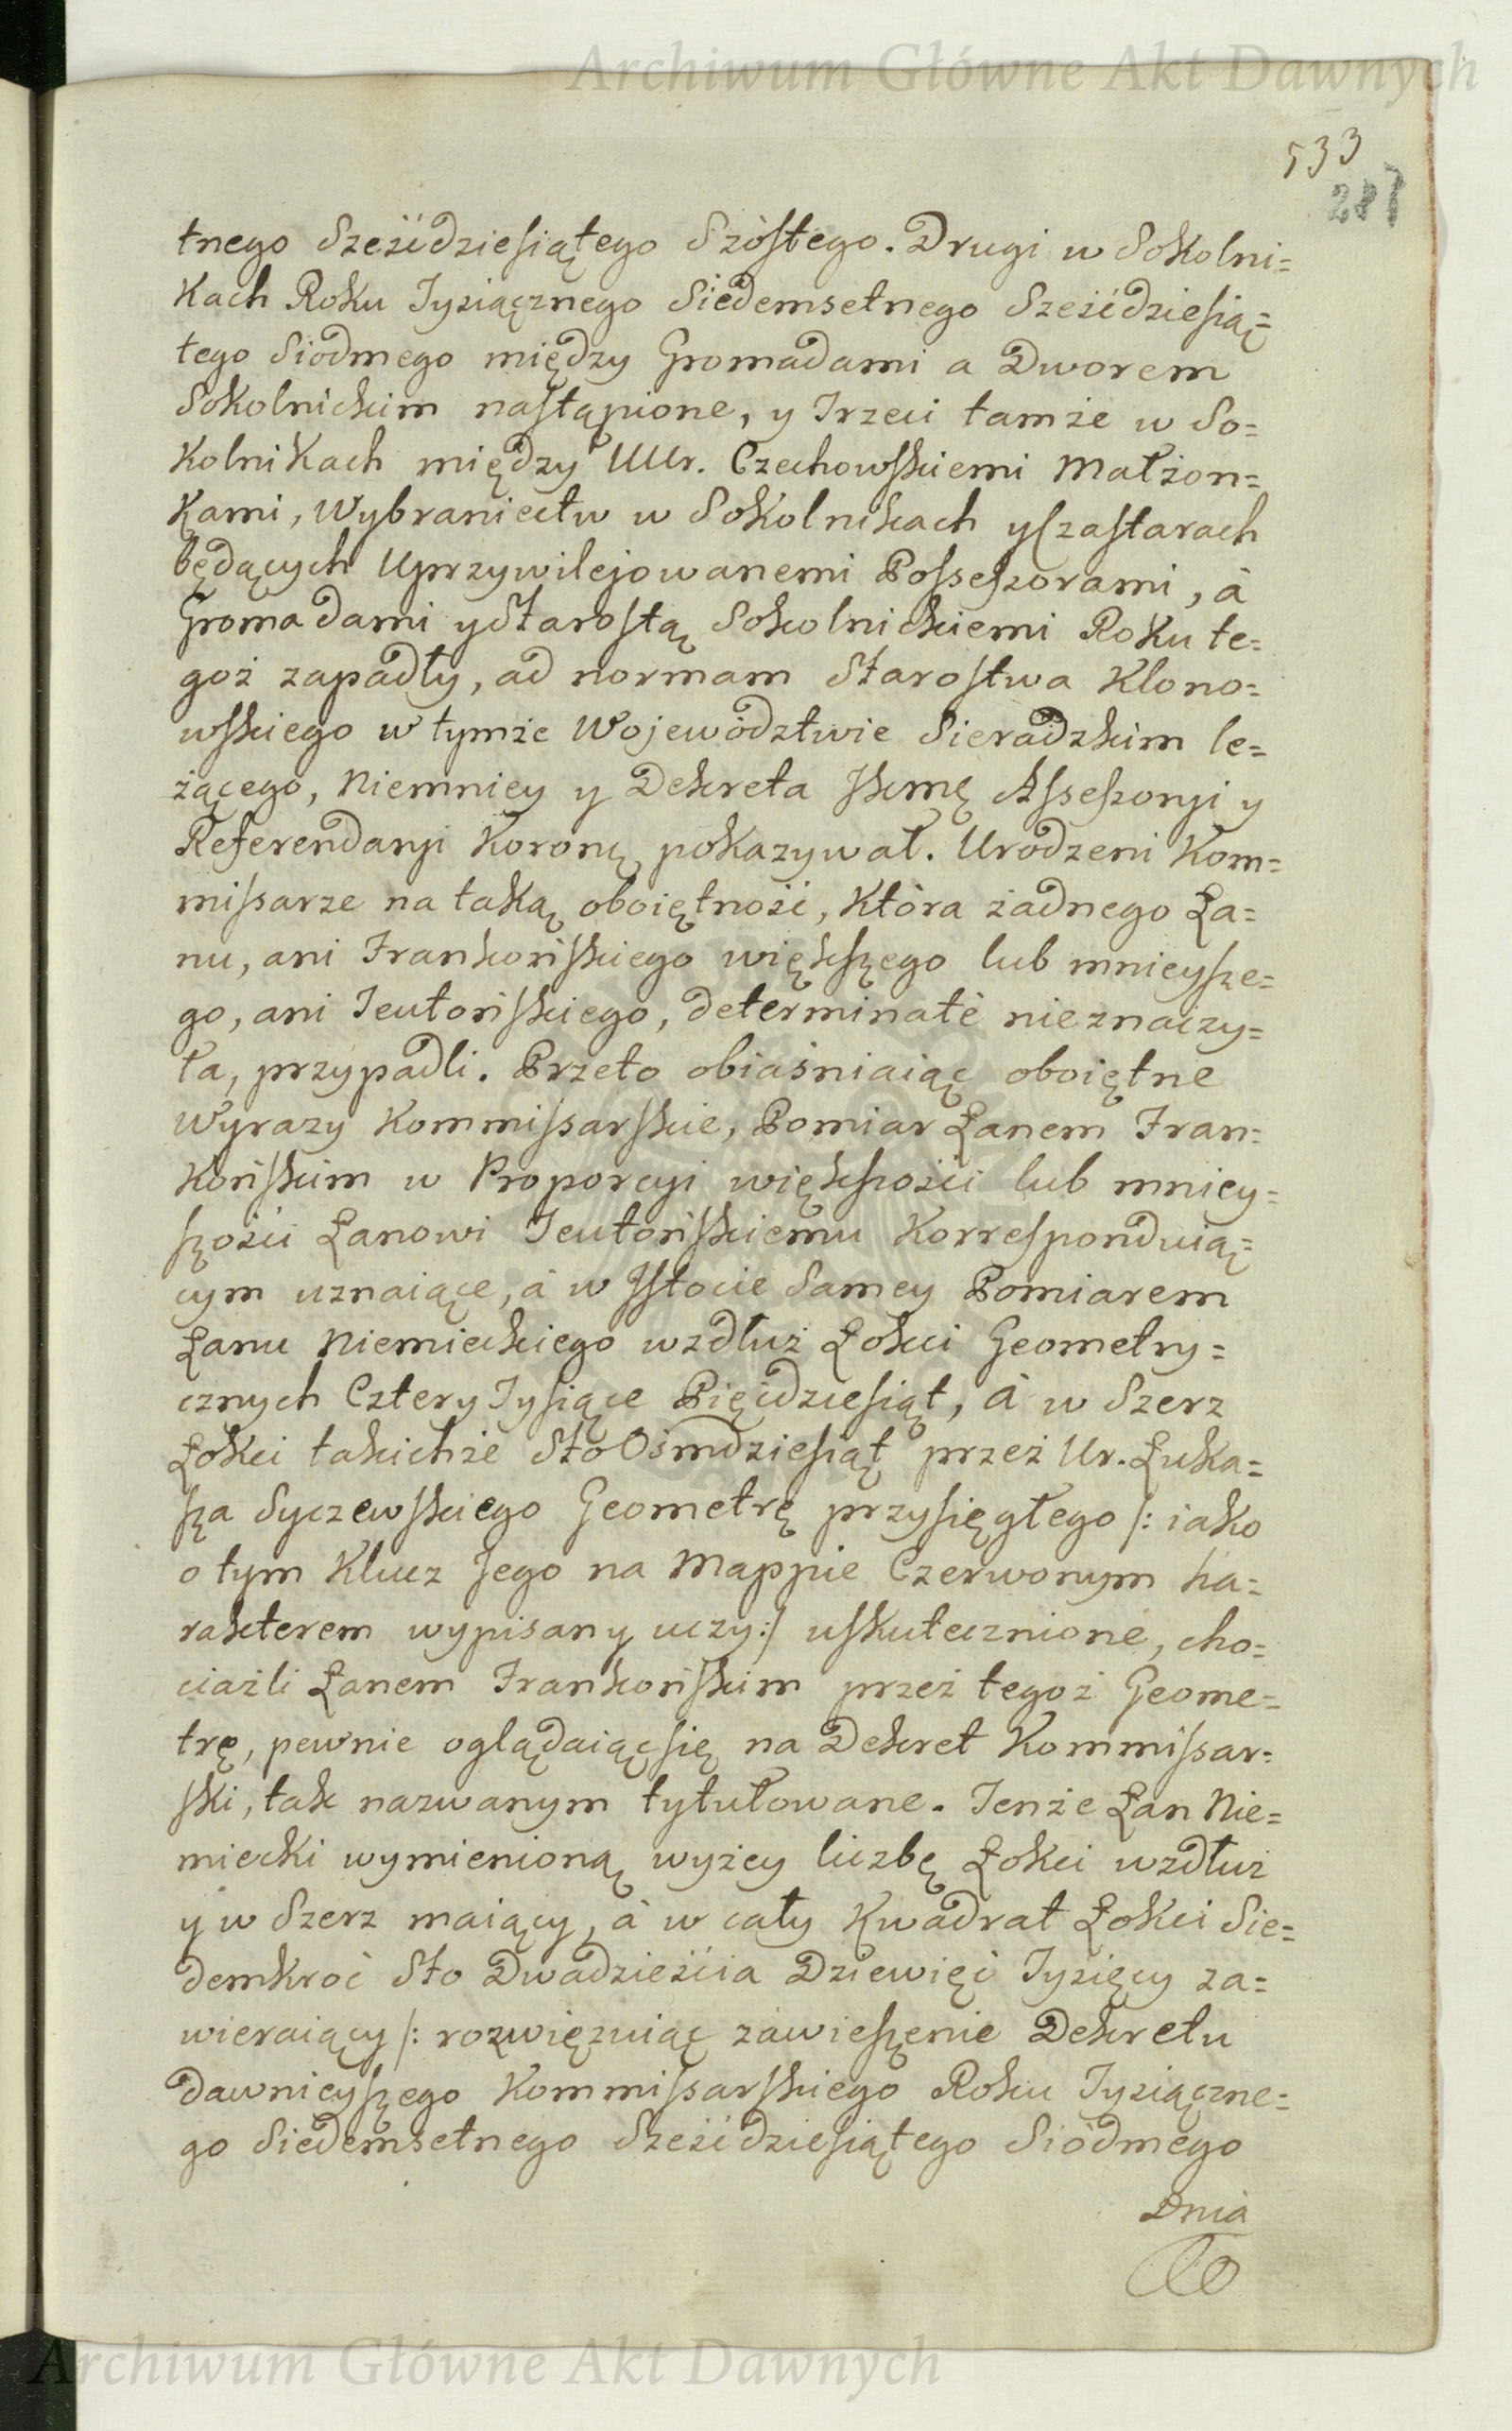 Archiwum Główne Akt Dawnych
533
287
tnego Sześćdziesiątego Szóstego. Drugi w Sokolni=
kach Roku Tysiącznego Siedemsetnego Sześćdziesią=
tego Siodmego między Gromadami a Dworem
Sokolnickim nastąpione, y Trzeci tamże w So=
kolnikach między UUr. Czechowskiemi Małżon=
kami, Wybraniectw w Sokolnikach y Szastarach
będących Uprzywilejowanemi Possessorami, à
Gromadami y Starostą Sokolnickiemi Roku te=
goż zapadły, ad normam Starostwa Klono=
wskiego w tymże Województwie Sieradzkim le=
żącego, Niemniey y Dekreta Jkmę Assessoryi y
Referendaryi Koronę pokazywał. Urodzeni Kom=
missarze na taką oboiętność, która żadnego Ła=
nu, ani Frankońskiego większego lub mnieysze=
go, ani Teutońskiego, determinatè nieznaczy=
ła, przypadli. Przeto obiaśniaiąc oboiętne
Wyrazy Kommissarskie, Pomiar Łanem Fran=
końskim w Proporcyi większości lub mniey=
szości Łanowi Teutońskiemu Korresponduią=
cym uznaiące, à w Istocie Samey Pomiarem
Łanu Niemieckiego wzdłuż Łokci Geometry=
cznych Cztery Tysiące Pięćdziesiąt, à w Szerz
Łokci takichże Sto Ośmdziesiąt przez Ur. Łuka=
sza Syczewskiego Geometrę przysięgłego /: iako
o tym Klucz Jego na Mappie Czerwonym ha=
rakterem wypisany uczy :/ uskutecznione, cho=
ciażli Łanem Frankońskim przez tegoż Geome=
trę, pewnie oglądaiąc się na Dekret Kommissar=
ski, tak nazwanym tytułowane. Tenże Łan Nie=
miecki wymienioną wyżey liczbę Łokci wzdłuż
y w Szerz maiący, à w cały Kwadrat Łokci Sie=
demkroć Sto Dwadzieścia Dziewięć Tysięcy za=
wieraiący /: rozwięzuiąc zawieszenie Dekretu
dawnieyszego Kommissarskiego Roku Tysiączne=
go Siedemsetnego Sześćdziesiątego Siódmego
Dnia
Archiwum Główne Akt Dawnych